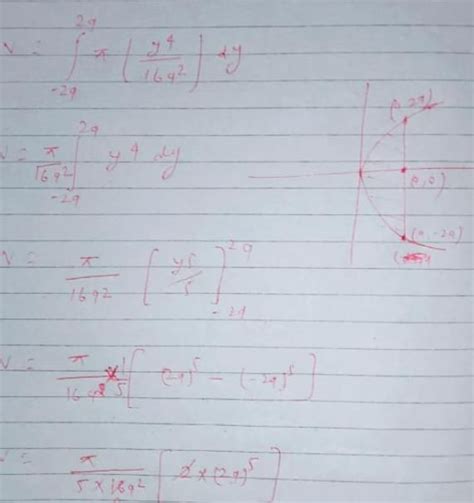 V = ∫_{-2a}^{2a} π ( y⁴ / 16a² ) dy
V = π / 16a² ∫_{-2a}^{2a} y⁴ dy
(a, 2a)
(a, 0)
(a, -2a)
V = π / 16a² [ y⁵ / 5 ]_{-2a}^{2a}
V = π / 16a² × 1 / 5 [ (2a)⁵ - (-2a)⁵ ]
V = π / 5 × 16a² [ 2 × (2a)⁵ ]